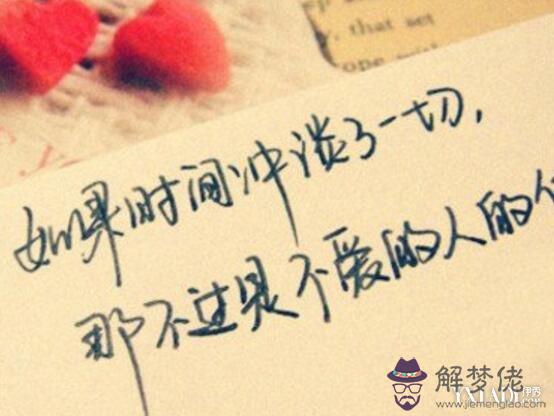 that set
如果时间冲淡了一切,
那不过是不爱的人的
解梦佬
www.jiemenglao.com